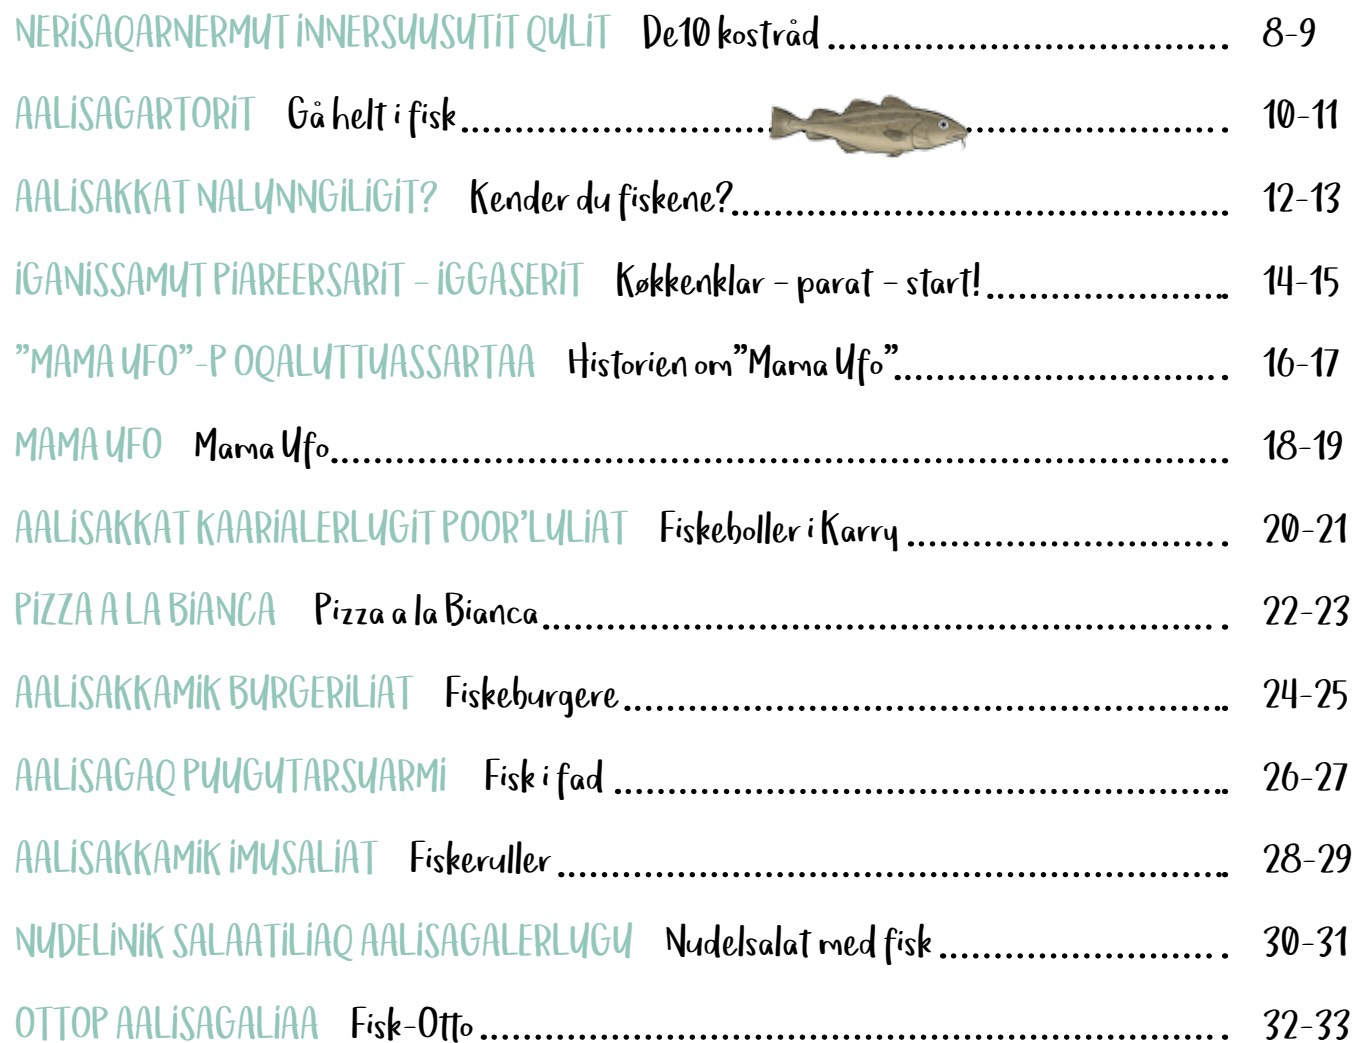 NERISAQARNERMUT INNERSUUSUTIT QULIT De 10 kostråd ........ 8-9
AALISAGARTORIT Gå helt i fisk ........ 10-11
AALISAKKAT NALUNNGILIGIT? Kender du fiskene? ........ 12-13
IGANISSAMUT PIAREERSARIT - IGGASERIT Køkkenklar - parat - start! ........ 14-15
"MAMA UFO"-P OQALUTTUASSARTAA Historien om "Mama Ufo" ........ 16-17
MAMA UFO Mama Ufo ........ 18-19
AALISAKKAT KAARIALERLUGIT POOR'LULIAT Fiskeboller i Karry ........ 20-21
PIZZA A LA BIANCA Pizza a la Bianca ........ 22-23
AALISAKKAMIK BURGERILIAT Fiskeburgere ........ 24-25
AALISAGAQ PUUGUTARSUARMI Fisk i fad ........ 26-27
AALISAKKAMIK IMUSALIAT Fiskeruller ........ 28-29
NUDELINIK SALAATILIAQ AALISAGALERLUGU Nudelsalat med fisk ........ 30-31
OTTOP AALISAGALIAA Fisk-Otto ........ 32-33